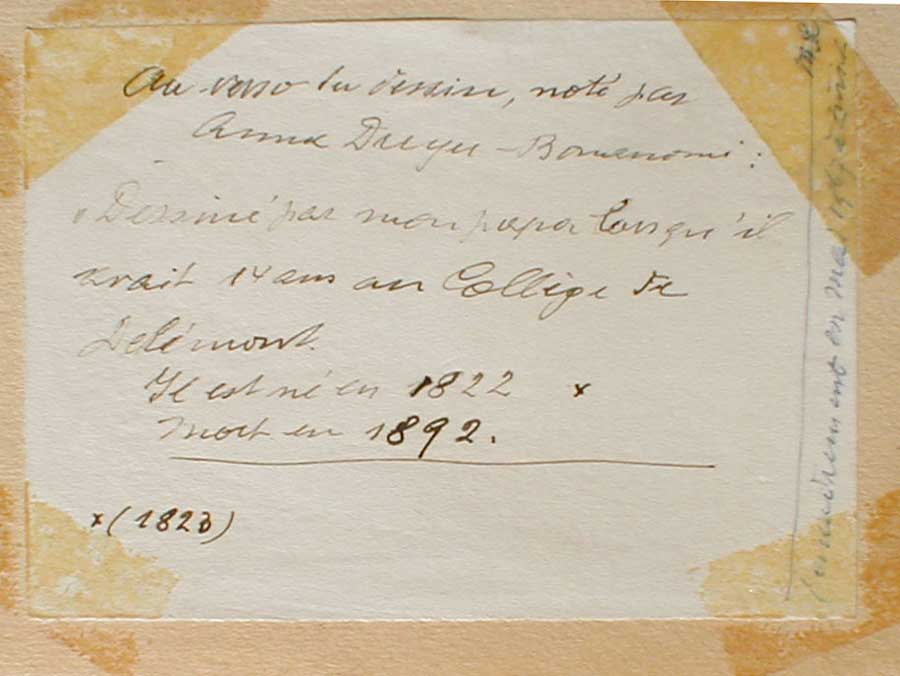 Au verso du dessin, noté par
Anna Dreyer-Bonanomi:
"Dessiné par mon papa lorsqu'il
avait 14 ans au Collège de
Delémont.
Il est né en 1822 x
Mort en 1892.
x (1823)
en mai